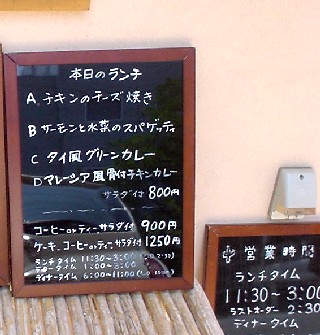 本日のランチ
A. チキンのチーズ焼き
B サーモンと水菜のスパゲッティ
C タイ風グリーンカレー
D マレーシア風骨付チキンカレー
サラダ付 800円
コーヒー or ティー. サラダ付 900円
ケーキ. コーヒー or ティー. サラダ付 1250円
ランチタイム 11:30〜3:00
ティータイム 1:00〜3:00
ディナータイム 6:00〜11:00
営業時間
ランチタイム
11:30〜3:00
ラストオーダー 2:30
ディナータイム